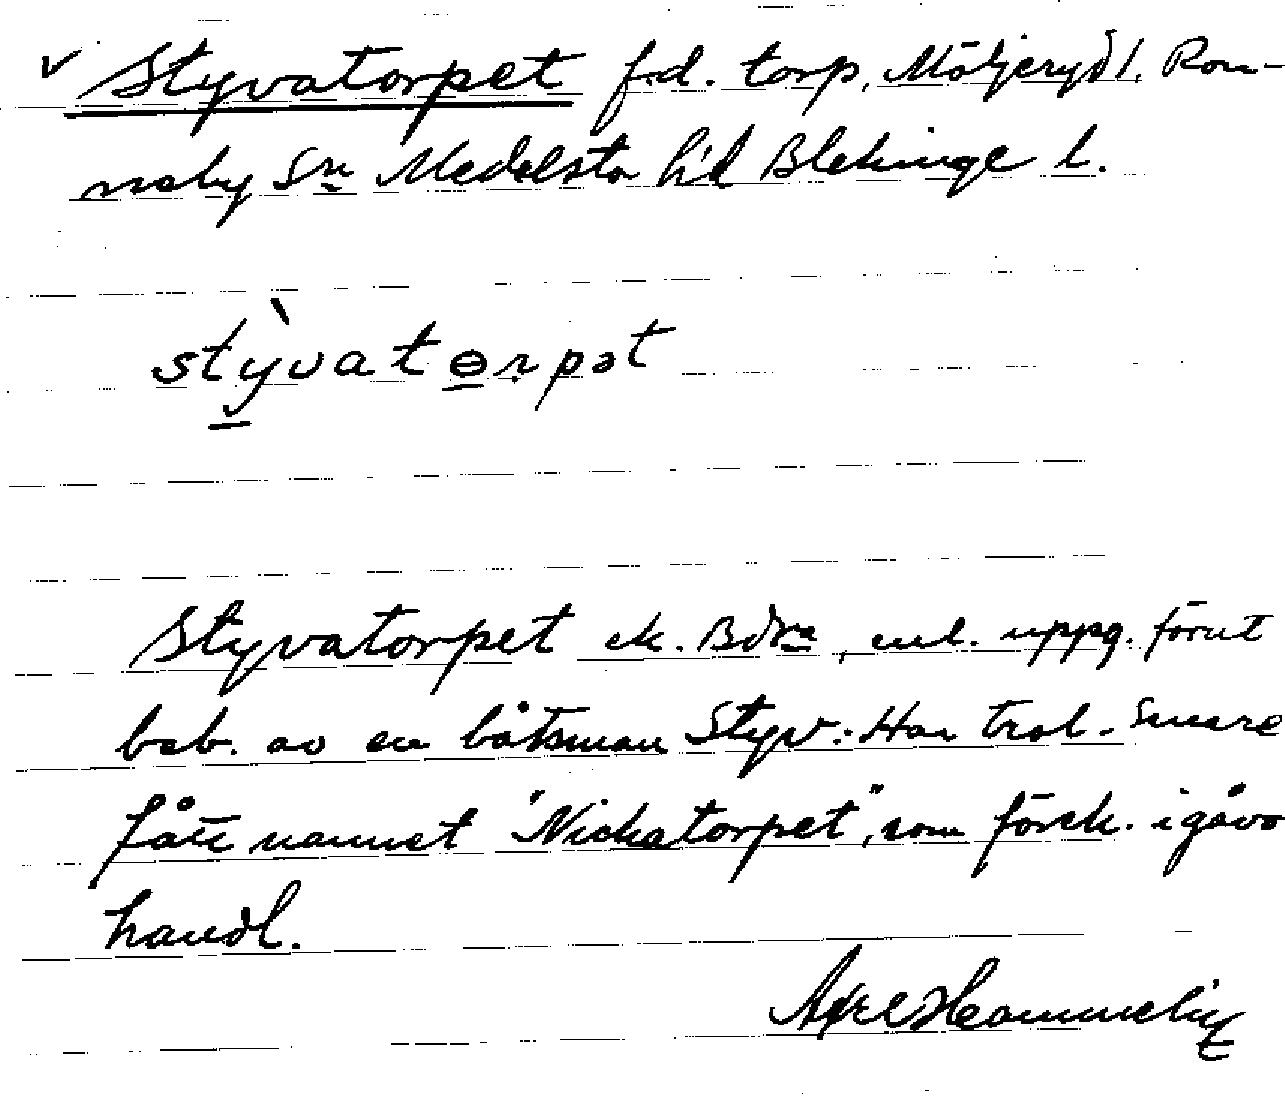 v Styvatorpet f.d. torp, Möljeryd 1, Ron-
neby Sn Medelsta h:d Blekinge l.
stỳvatɵrpət
Styvatorpet ek. , enl. uppg. förut
beb. av en båtsman Styv: Har trol. senare
fått namnet "Nickatorpet", som försk. i gåvo
handl.
Axel